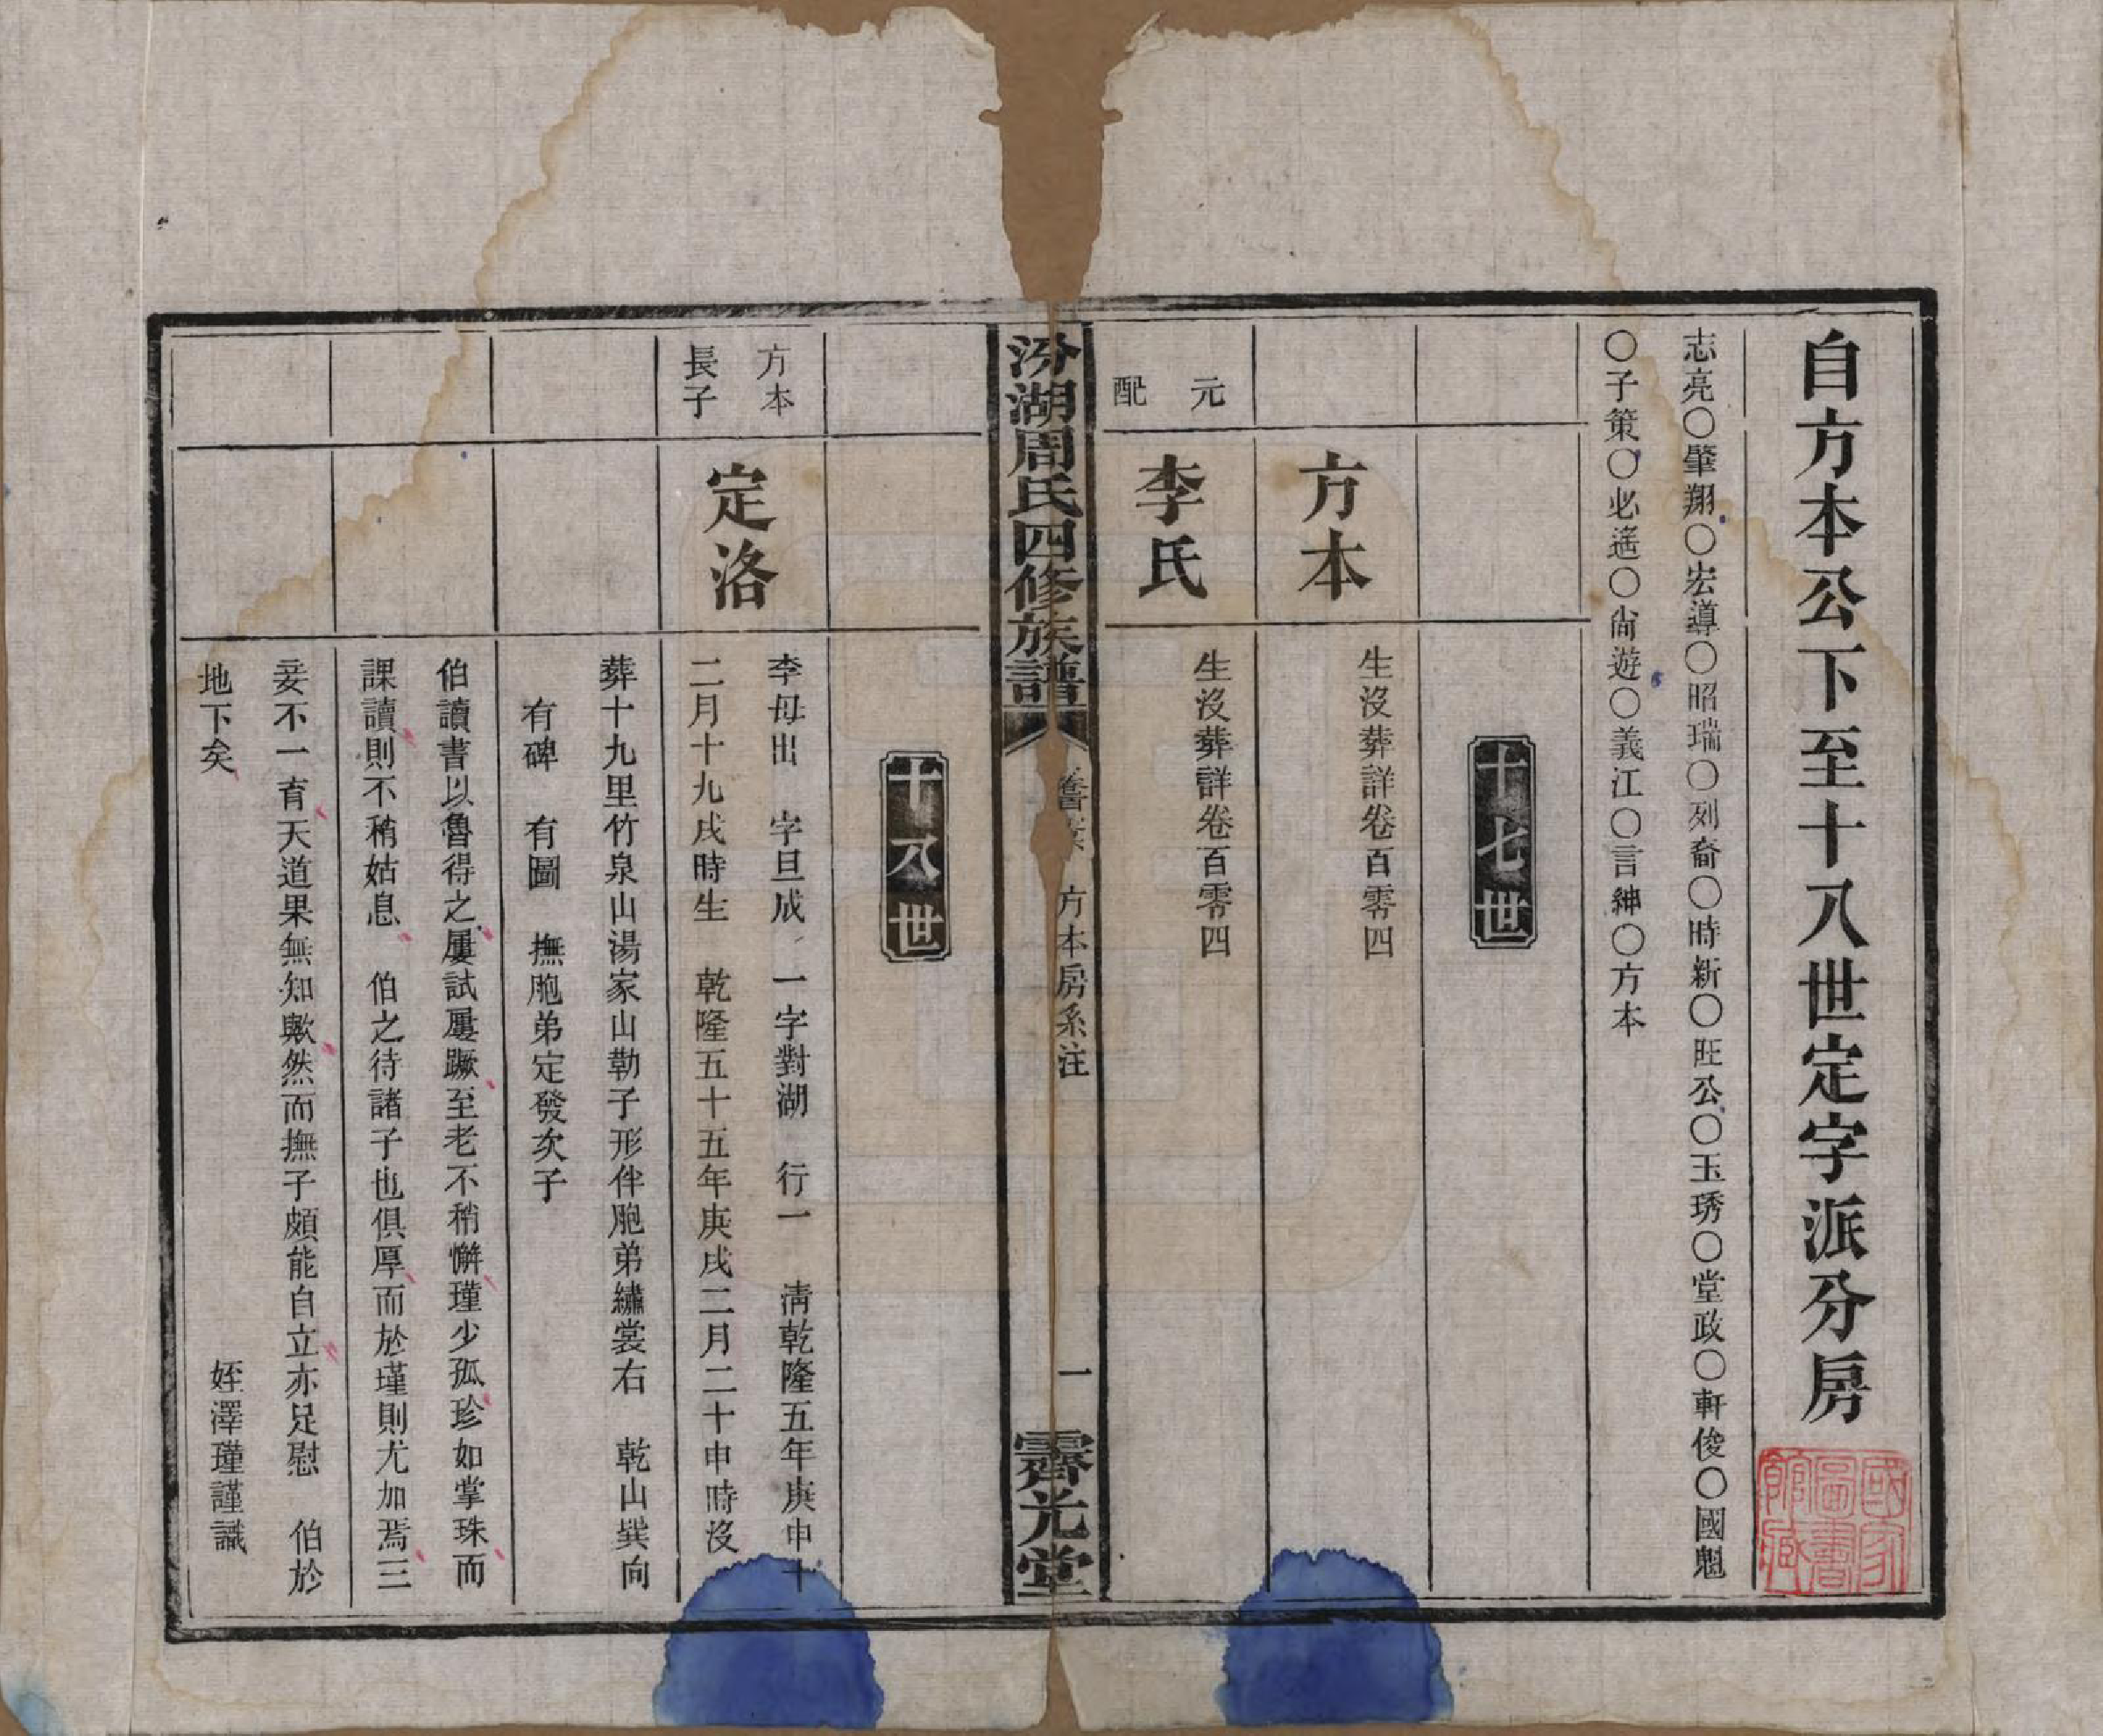 自方本公下至十八世定字派分房
國家圖書館藏
志亮〇肇翔〇宏導〇昭瑞〇列裔〇時新〇旺公〇玉琇〇堂政〇軒俊〇國魁
〇子策〇必遙〇尙遊〇義江〇言紳〇方本
十七世
方本
生沒葬詳卷百零四
元配
李氏
生沒葬詳卷百零四
汾湖周氏四修族譜
方本房系注
一
霽光堂
十八世
方本長子
定洛
李母出 字旦成 一字對湖 行一 清乾隆五年庚申十
二月十九戌時生 乾隆五十五年庚戌二月二十申時沒
葬十九里竹泉山湯家山勒子形伴胞弟繡裳右 乾山巽向
有碑 有圖 撫胞弟定發次子
伯讀書以魯得之屢試屢蹶至老不稍懈瑾少孤珍如掌珠而
課讀則不稍姑息 伯之待諸子也俱厚而於瑾則尤加焉三
妾不一育天道果無知歟然而撫子頗能自立亦足慰 伯於
地下矣
姪澤瑾謹識